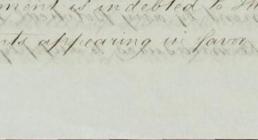 ment is indebted to
nts appearing in favor